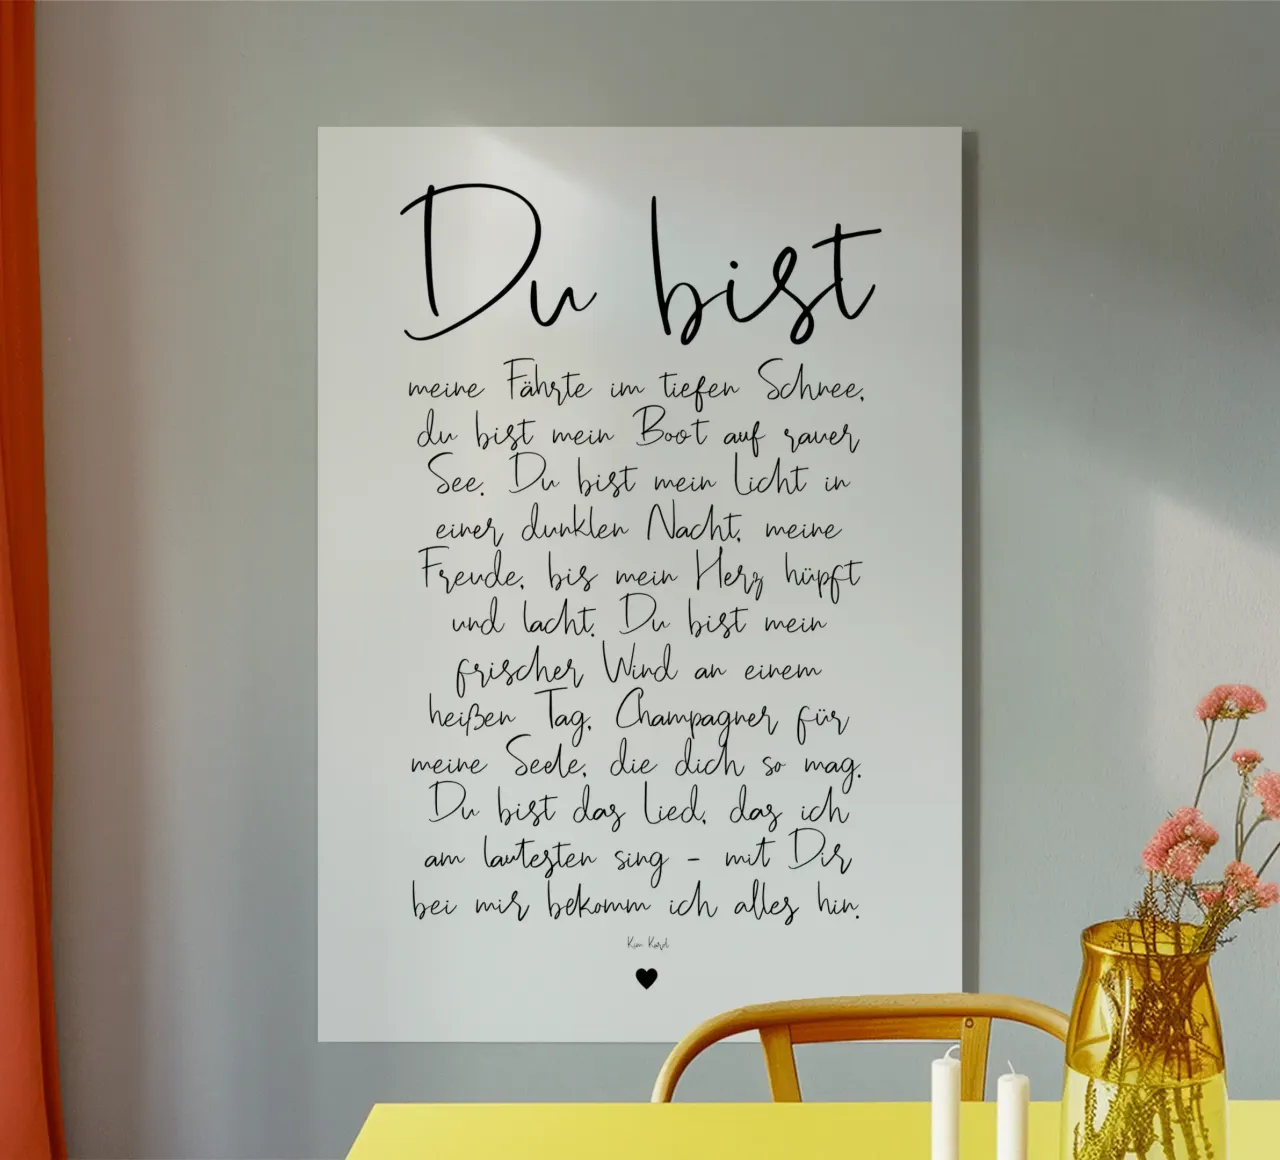 Du bist
meine Fährte im tiefen Schnee,
du bist mein Boot auf rauer
See. Du bist mein Licht in
einer dunklen Nacht, meine
Freude, bis mein Herz hüpft
und lacht. Du bist mein
frischer Wind an einem
heißen Tag, Champagner für
meine Seele, die dich so mag.
Du bist das Lied, das ich
am lautesten sing - mit Dir
bei mir bekomm ich alles hin.
Kim